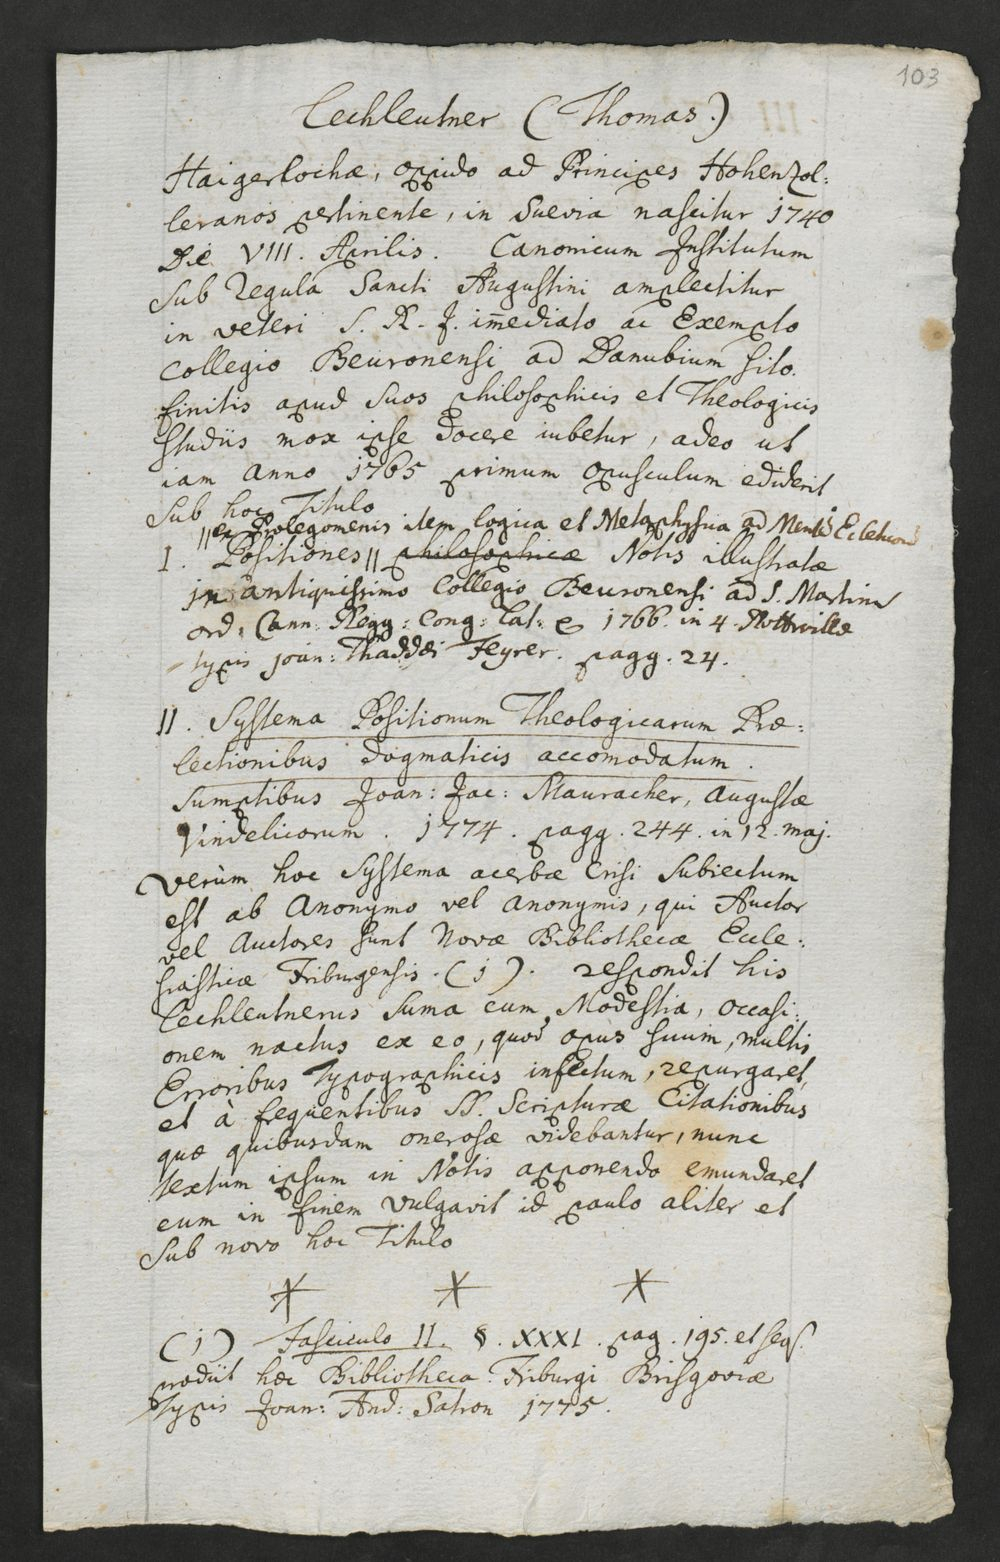 103
Lechleutner (Thomas.)
Haigerlochæ, oppido ad Principes Hohenzol:
leranos pertinente, in Suevia nascitur 1740
Die VIII. Aprilis. Canonicum Institutum
sub Regula Sancti Augustini amplectitur
in veteri S. R. J. im̄ediato ac Exempto
Collegio Beuronensi ad Danubium sito.
finitis apud suos philosophicis et Theologicis
studiis mox ipse docere iubetur, adeo ut
iam anno 1765 primum opusculum ediderit
sub hoc Titulo
||ex Prolegomenis item logica et Metaphysica ad Mentē Eclecticorū
I. Positiones|| philosophicæ Notis illustratæ
in antiquissimo Collegio Beuronensi ad S. Martinū
ord: Cann: Regg: Cong: Lat: 1766. in 4. Rottwillæ
typis Joan: Thaddæi Feyrer. pagg. 24.
II. Systema Positionum Theologicarum Præ:
lectionibus dogmaticis accomodatum.
Sumptibus Joan: Jac: Mauracher, Augustæ
Vindelicorum. 1774. pagg. 244. in 12. maj.
Verùm hoc Systema acerbæ Crisi subiectum
est ab Anonymo vel Anonymis, qui Auctor
vel Auctores sunt Novæ Bibliothecæ Eccle:
siasticæ Friburgensis. (1). respondit his
Lechleutnerus suma cum Modestia, occasi:
onem nactus ex eo, quod opus suum, multis
Erroribus typographicis infectum, repurgaret,
et à frequentibus SS. Scripturæ Citationibus
quæ quibusdam onerosæ videbantur, nunc
textum ipsum in Notis apponendo emundaret
eum in finem vulgavit id paulo aliter et
sub novo hoc Titulo
* * *
(1) Fasciculo II. §. XXXI. pag. 195. et seqs.
prodiit hæc Bibliotheca Friburgi Brisgoviæ
typis Joan: And: Satron 1775.